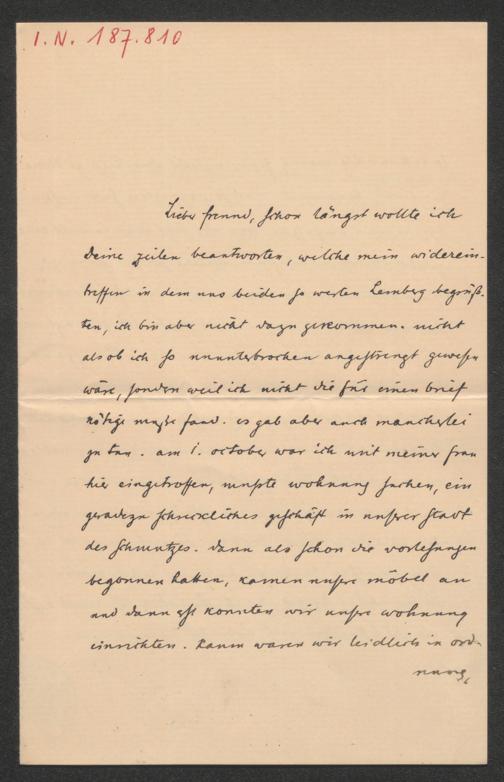 I.N. 187.810
Lieber freund, schon längst wollte ich
deine zeilen beantworten, welche mein widerein-
treffen in dem uns beiden so werten Lemberg begrüß-
ten, ich bin aber nicht dazu gekommen. nicht
als ob ich so ununterbrochen angestrengt gewesen
wäre, sondern weil ich nicht die für einen brief
nötige muße fand. es gab aber auch mancherlei
zu tun. am 1. october war ich mit meiner frau
hier eingetroffen, mußte wohnung suchen, ein
geradezu schreckliches geschäft in unsrer stadt
des schmutzes. dann als schon die vorlesungen
begonnen hatten, kamen unsre möbel an
und dann erst konnten wir unsre wohnung
einrichten. kaum waren wir leidlich in ord-
nung,